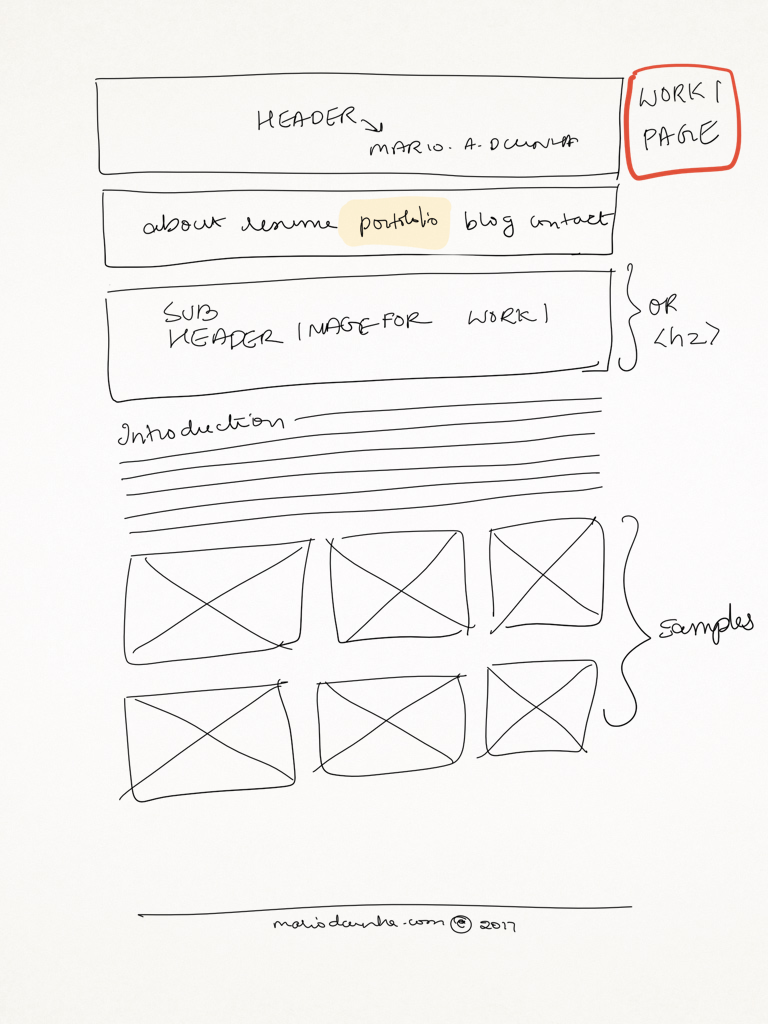 HEADER
MARIO. A. DCUNHA
WORK 1
PAGE
about resume portfolio blog contact
SUB
HEADER IMAGE FOR WORK 1
OR
<h2>
Introduction
Samples
mariodcunha.com © 2017